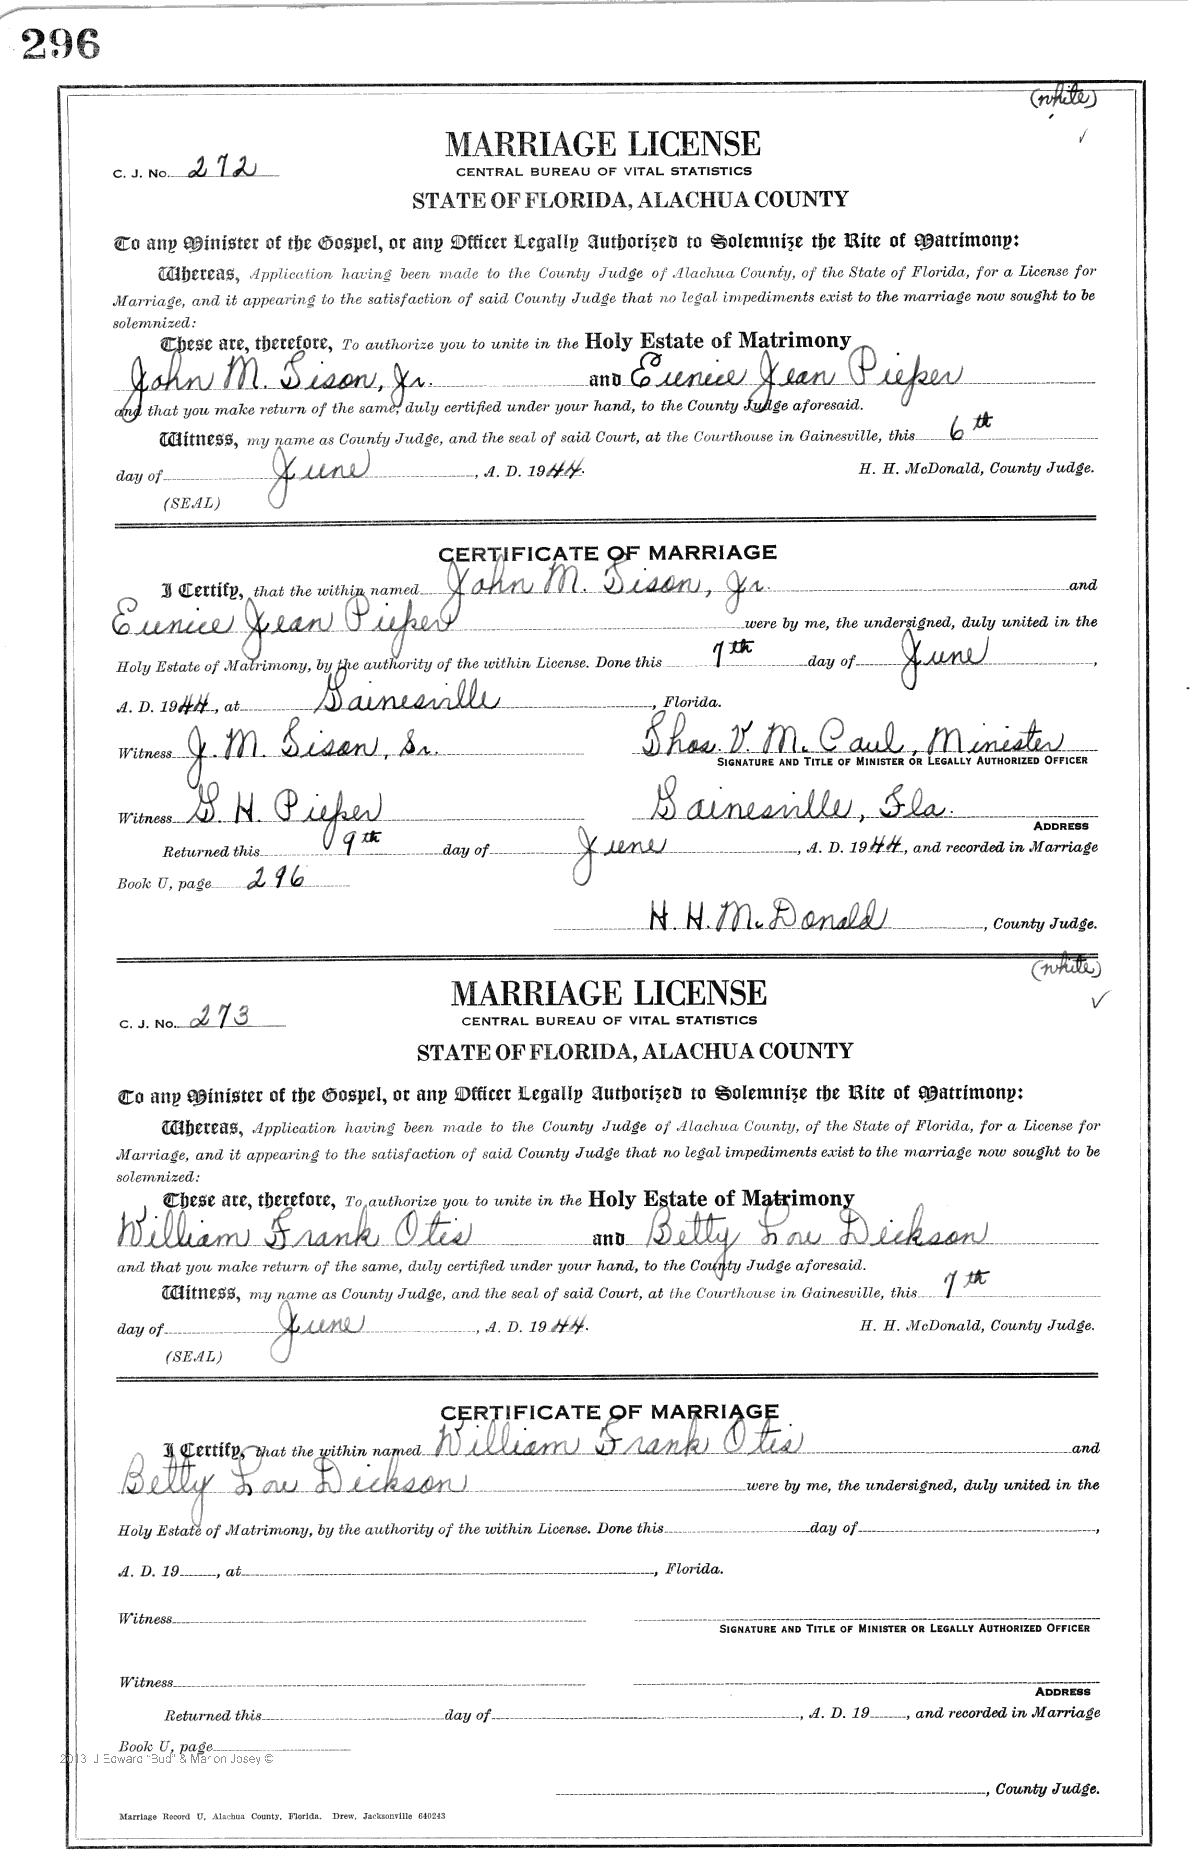 296
(white)
✓
MARRIAGE LICENSE
C. J. No. 272
CENTRAL BUREAU OF VITAL STATISTICS
STATE OF FLORIDA, ALACHUA COUNTY
To any Minister of the Gospel, or any Officer Legally Authorized to Solemnize the Rite of Matrimony:
Whereas, Application having been made to the County Judge of Alachua County, of the State of Florida, for a License for
Marriage, and it appearing to the satisfaction of said County Judge that no legal impediments exist to the marriage now sought to be
solemnized:
These are, therefore, To authorize you to unite in the Holy Estate of Matrimony
John M. Sison, Jr. and Eunice Jean Pieper
and that you make return of the same, duly certified under your hand, to the County Judge aforesaid.
Witness, my name as County Judge, and the seal of said Court, at the Courthouse in Gainesville, this 6th
day of June, A. D. 1944. H. H. McDonald, County Judge.
(SEAL)
CERTIFICATE OF MARRIAGE
I Certify, that the within named John M. Sison, Jr. and
Eunice Jean Pieper were by me, the undersigned, duly united in the
Holy Estate of Matrimony, by the authority of the within License. Done this 7th day of June,
A. D. 1944, at Gainesville, Florida.
Witness J. M. Sison, Sr. Thos. V. McCaul, Minister
SIGNATURE AND TITLE OF MINISTER OR LEGALLY AUTHORIZED OFFICER
Witness G. H. Pieper Gainesville, Fla.
ADDRESS
Returned this 9th day of June, A. D. 1944, and recorded in Marriage
Book U, page 296
H. H. McDonald, County Judge.
(white)
✓
MARRIAGE LICENSE
C. J. No. 273
CENTRAL BUREAU OF VITAL STATISTICS
STATE OF FLORIDA, ALACHUA COUNTY
To any Minister of the Gospel, or any Officer Legally Authorized to Solemnize the Rite of Matrimony:
Whereas, Application having been made to the County Judge of Alachua County, of the State of Florida, for a License for
Marriage, and it appearing to the satisfaction of said County Judge that no legal impediments exist to the marriage now sought to be
solemnized:
These are, therefore, To authorize you to unite in the Holy Estate of Matrimony
William Frank Otis and Betty Lou Dickson
and that you make return of the same, duly certified under your hand, to the County Judge aforesaid.
Witness, my name as County Judge, and the seal of said Court, at the Courthouse in Gainesville, this 7th
day of June, A. D. 1944. H. H. McDonald, County Judge.
(SEAL)
CERTIFICATE OF MARRIAGE
I Certify, that the within named William Frank Otis and
Betty Lou Dickson were by me, the undersigned, duly united in the
Holy Estate of Matrimony, by the authority of the within License. Done this day of ,
A. D. 19 , at , Florida.
Witness
SIGNATURE AND TITLE OF MINISTER OR LEGALLY AUTHORIZED OFFICER
Witness
ADDRESS
Returned this day of , A. D. 19 , and recorded in Marriage
Book U, page
2013 J Edward "Bud" & Marion Josey ©
, County Judge.
Marriage Record U, Alachua County, Florida. Drew, Jacksonville 640243